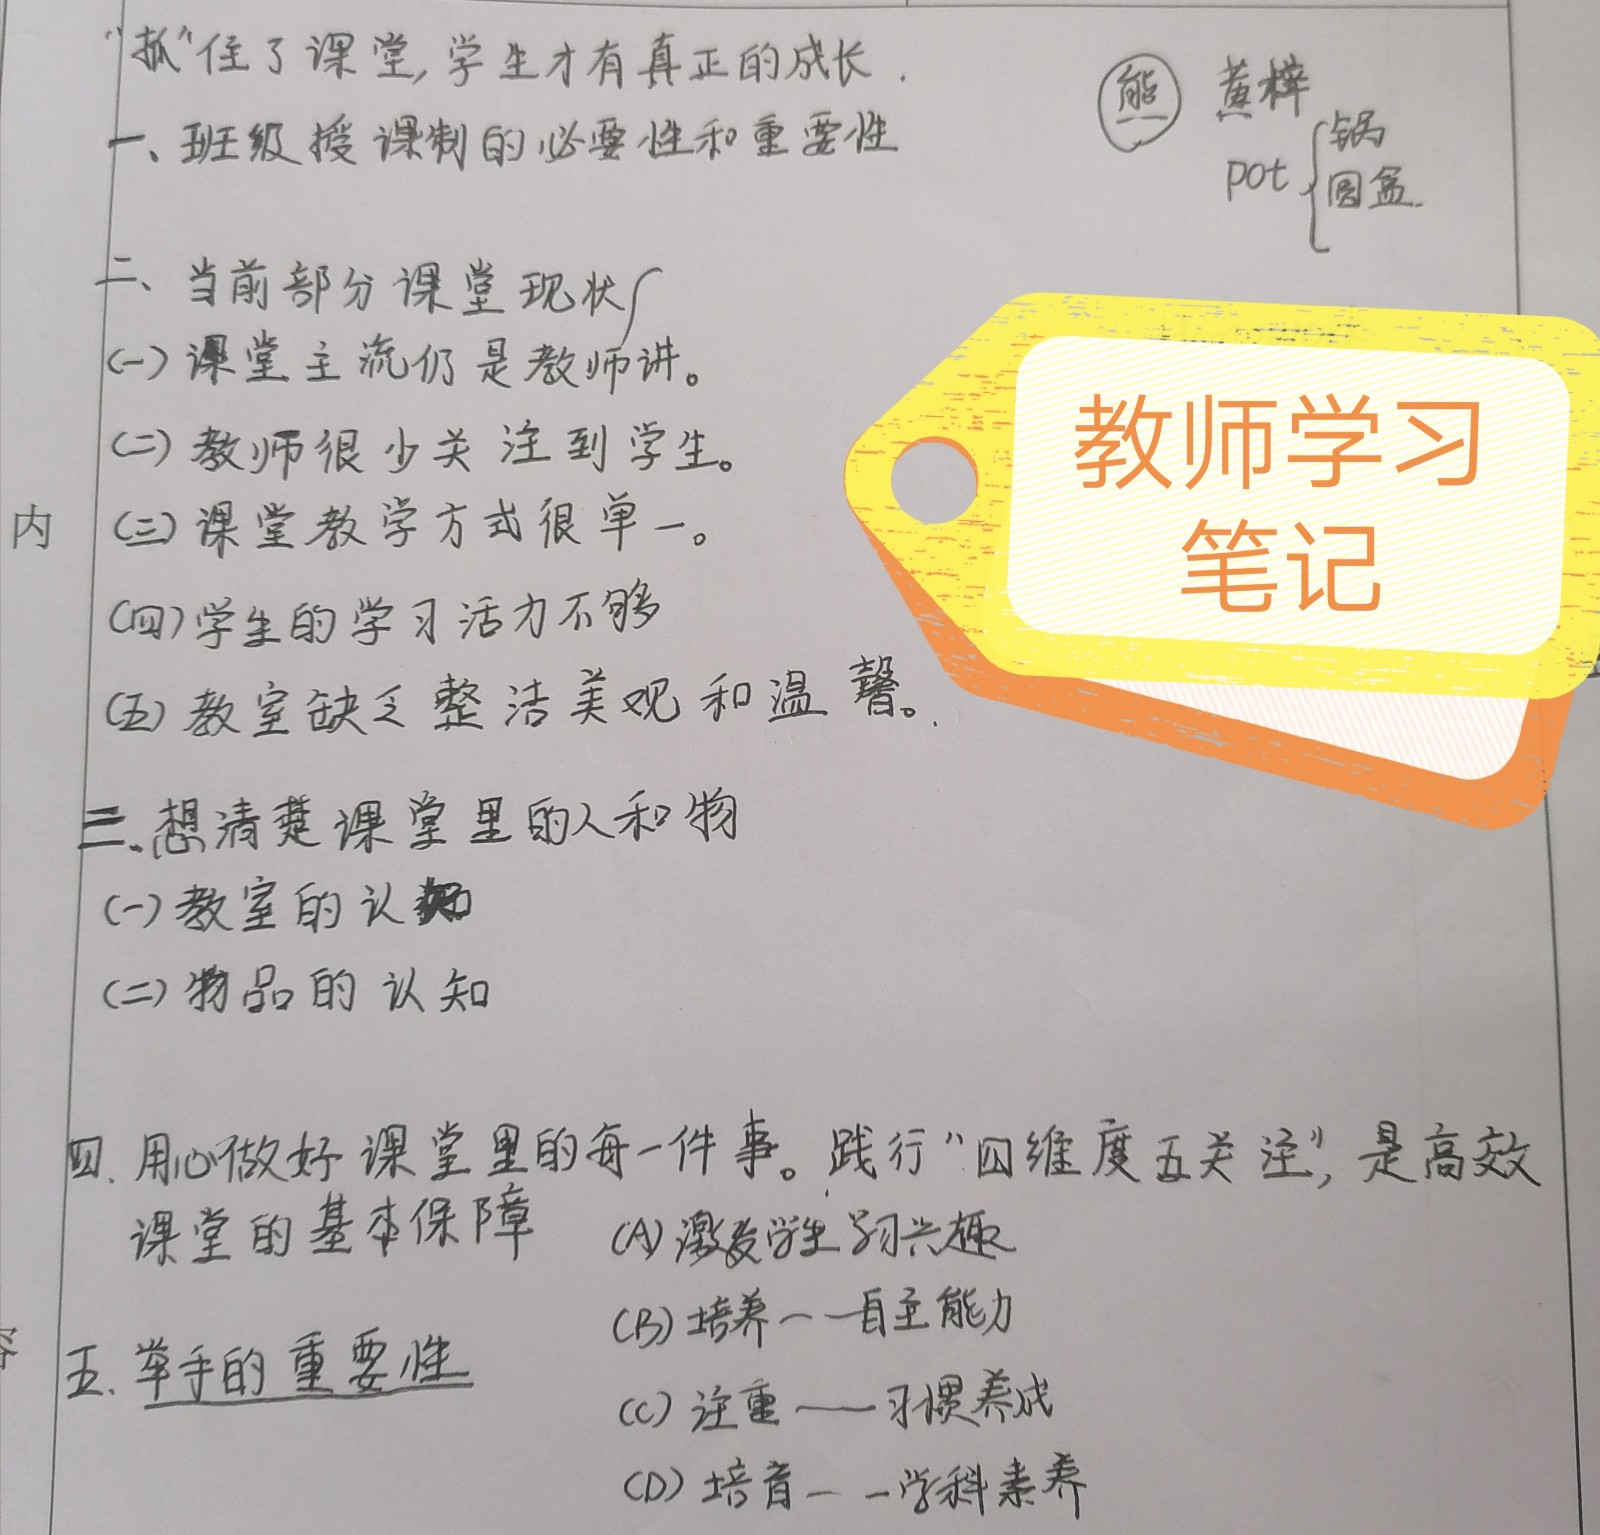 “抓”住了课堂,学生才有真正的成长.
熊 黄梓
一、班级授课制的必要性和重要性
pot { 锅
圆盆.
二、当前部分课堂现状
(一)课堂主流仍是教师讲。
(二)教师很少关注到学生。
(三)课堂教学方式很单一。
(四)学生的学习活力不够
(五)教室缺乏整洁美观和温馨。
教师学习
笔记
内
三.想清楚课堂里的人和物
(一)教室的认知
(二)物品的认知
四.用心做好课堂里的每一件事。践行“四维度五关注”,是高效
课堂的基本保障
(A)激发学生学习兴趣
(B)培养——自主能力
五.举手的重要性
(C)注重——习惯养成
(D)培育——学科素养
容